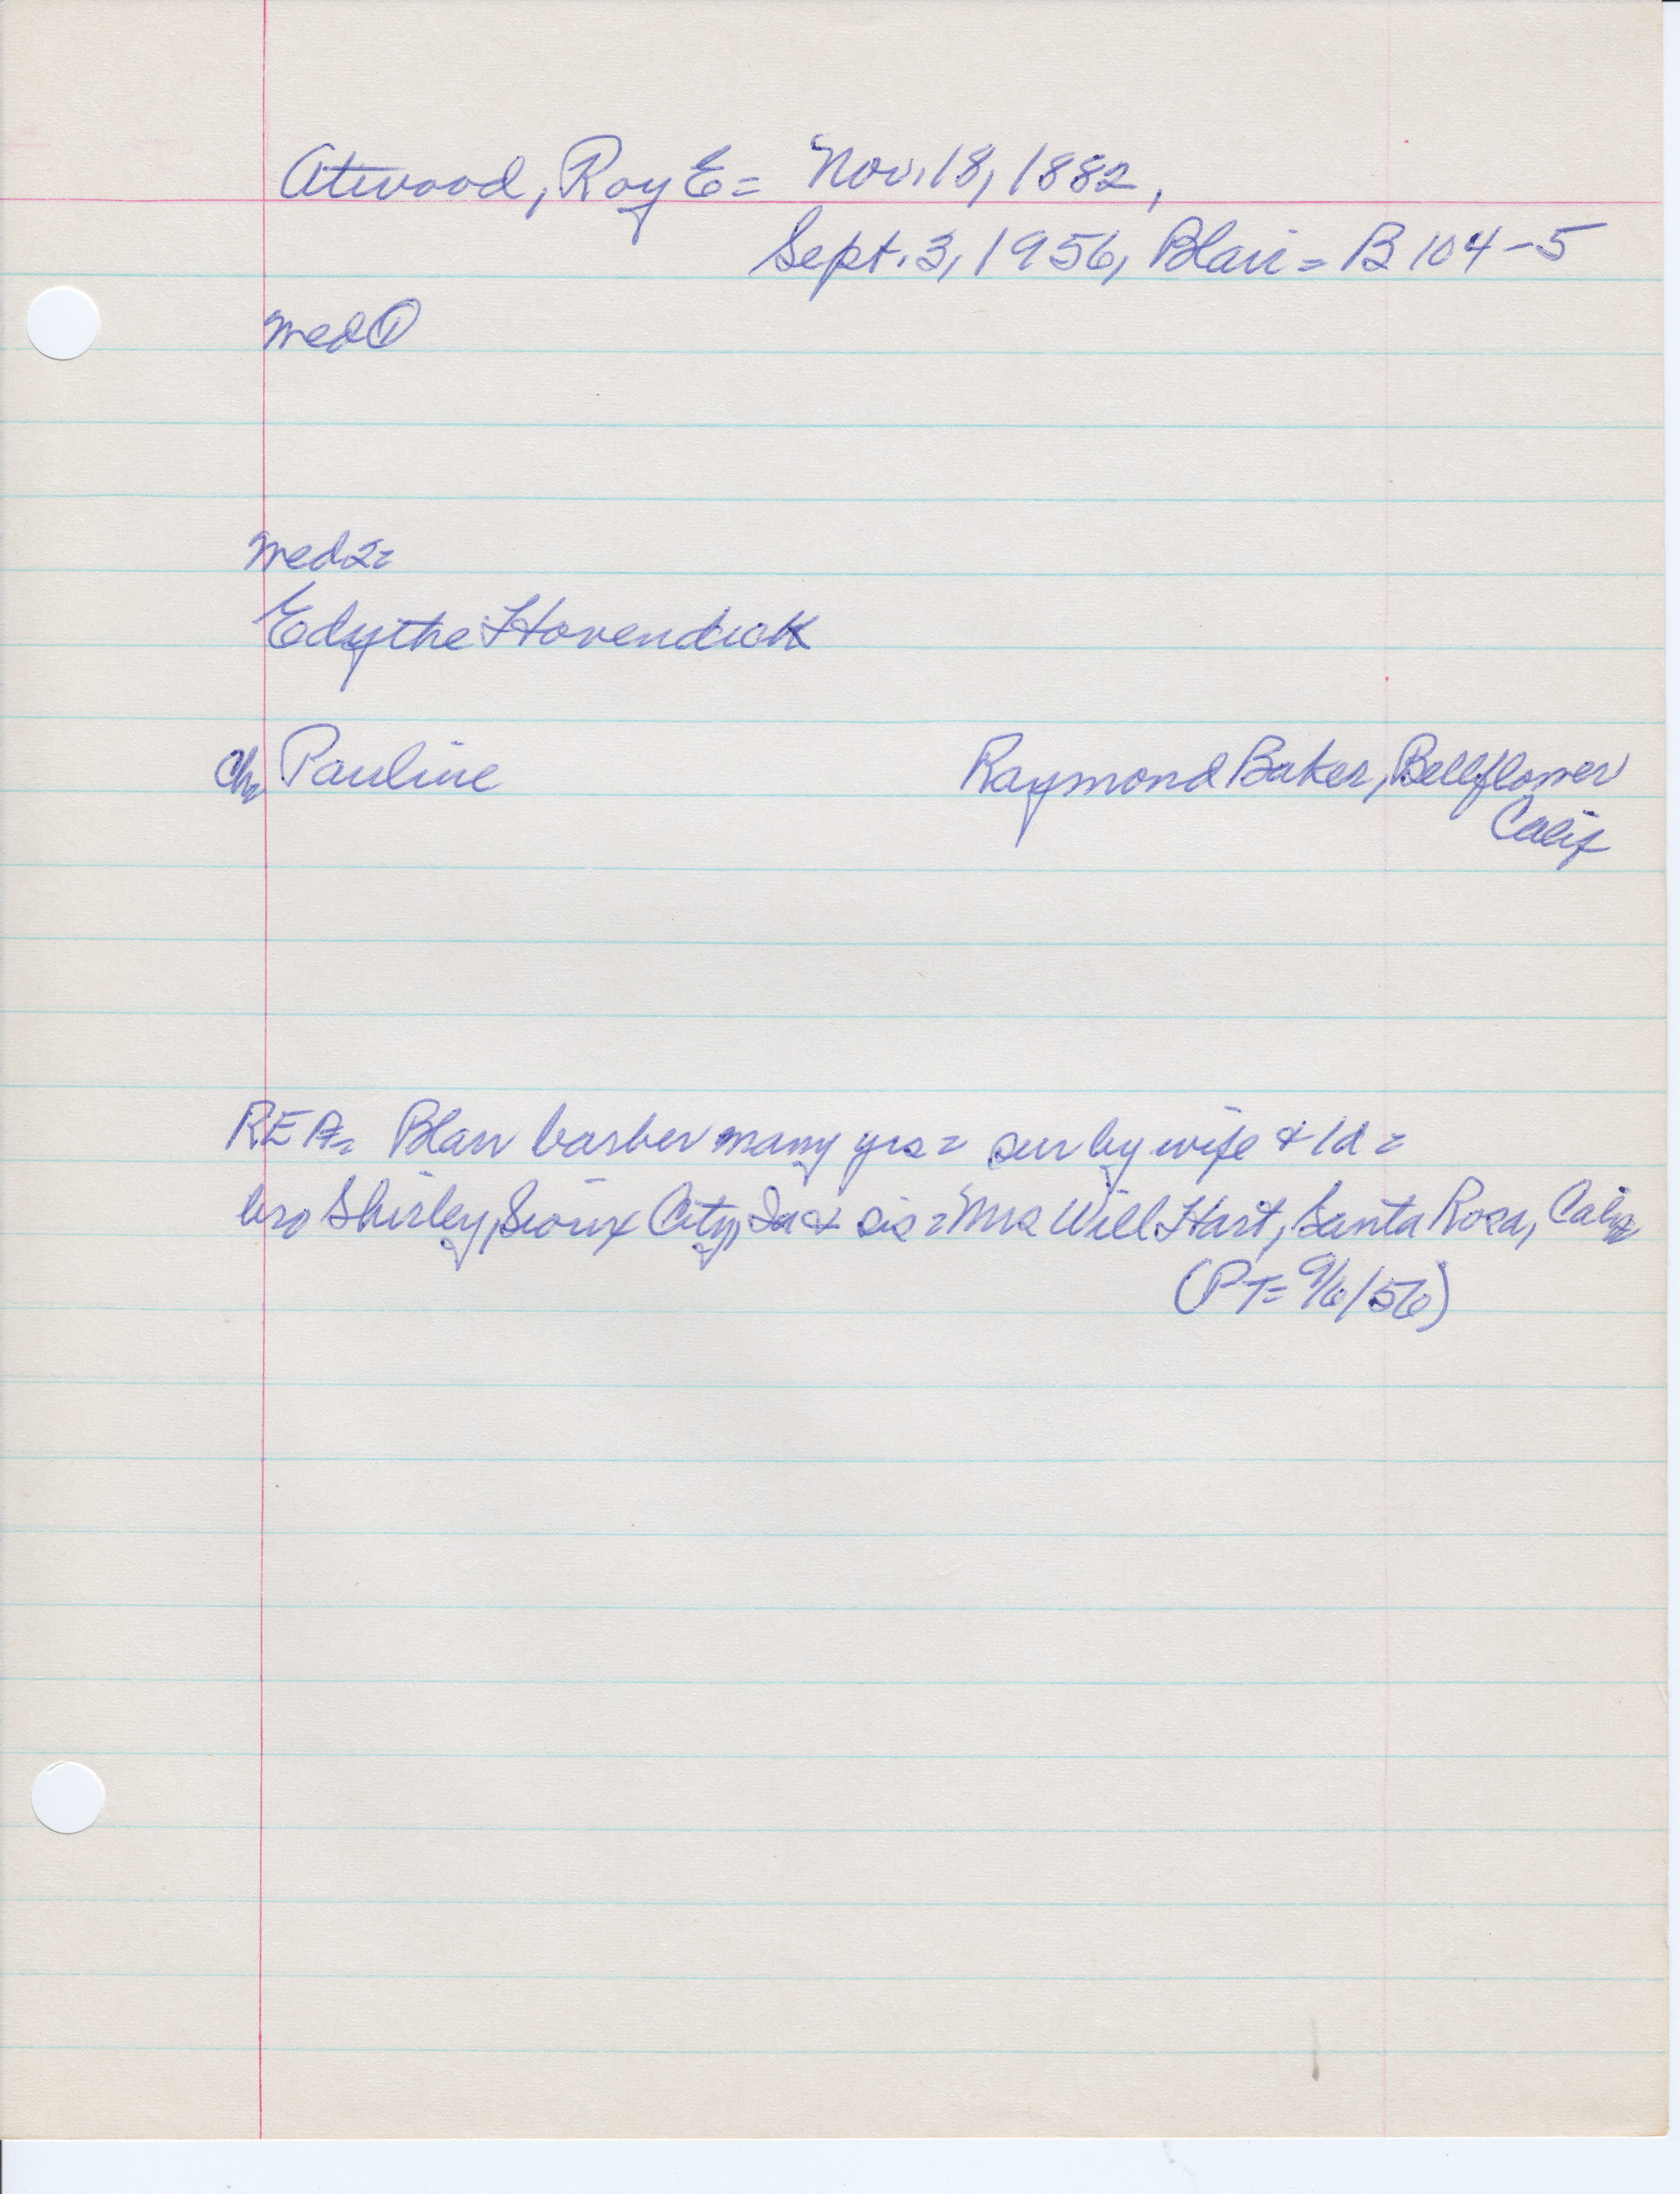 Atwood, Roy E = Nov. 18, 1882,
Sept. 3, 1956, Blair = B 104-5
med ①
med 2=
Edythe Hovendick
Ch Pauline Raymond Baker, Bellflower
Calif
REA= Blair barber many yrs = sur by wife & 1d =
bro Shirley, Sioux City, Ia & sis = Mrs Will Hart, Santa Rosa, Calif
(PT= 9/6/56)